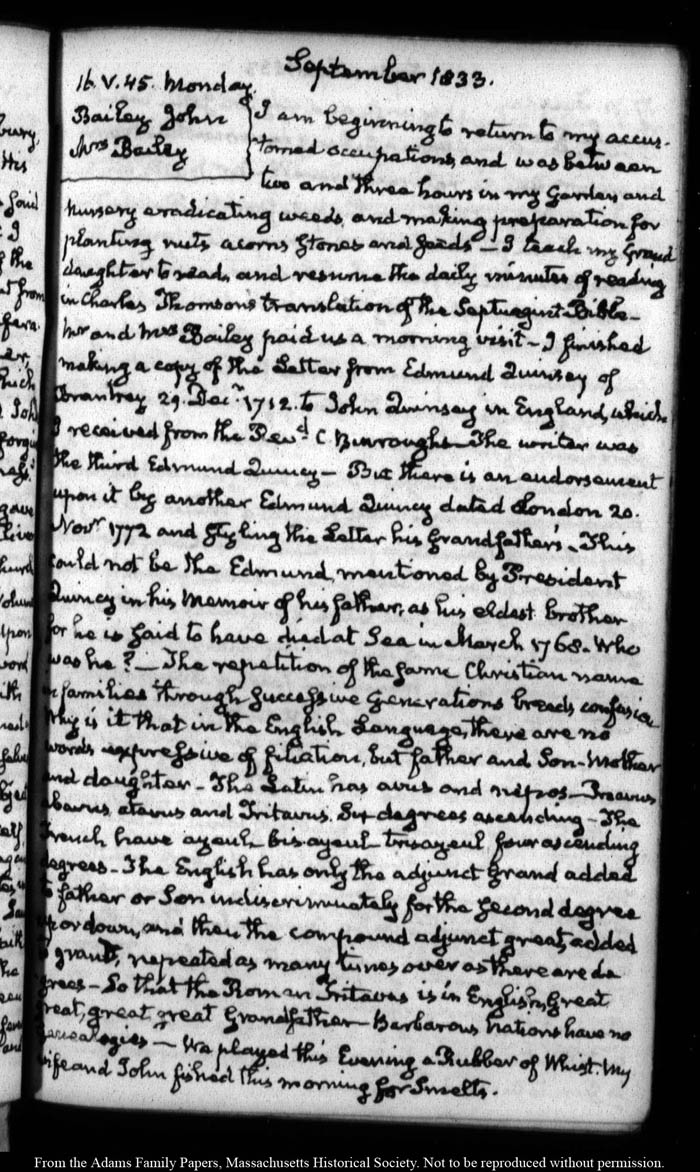 September 1833.
16. V. 45. Monday.
Bailey John
Mrs Bailey
I am beginning to return to my accus-
tomed occupations, and was between
two and three hours in my Garden and
nursery eradicating weeds, and making preparation for
planting nuts acorns stones and seeds — I teach my Grand
daughter to read, and resume the daily minutes of reading
in Charles Thomson's translation of the Septuagint Bible—
Mr and Mrs Bailey paid us a morning visit — I finished
making a copy of the Letter from Edmund Quinsey of
Braintrey 29. Decr 1712. to John Quinsey in England, which
I received from the Revd C. Burroughs— The writer was
the third Edmund Quincy — But there is an endorsement
upon it by another Edmund Quincy dated London 20.
Novr 1772 and styling the Letter his Grandfather's. This
could not be the Edmund, mentioned by President
Quincy in his Memoir of his father, as his eldest brother
for he is said to have died at Sea in March 1768. Who
was he? — The repetition of the same Christian name
in families through successive Generations breeds confusion
Why is it that in the English Language, there are no
words expressive of filiation, but father and Son - Mother
and daughter — The Latin has avus and nepos —
abavus, atavus and Tritavus. Six degrees ascending — The
French have ayeul, bisayeul trisayeul, four ascending
degrees — The English has only the adjunct Grand added
to father or Son indiscriminately for the second degree
up or down, and then the compound adjunct great, added
to grand, repeated as many times over as there are de
grees — So that the Roman Tritavus is in English, Great
great, great, great Grandfather — Barbarous Nations have no
Genealogies — We played this Evening a Rubber of Whist. My
wife and John fished this morning for Smelts.
From the Adams Family Papers, Massachusetts Historical Society. Not to be reproduced without permission.